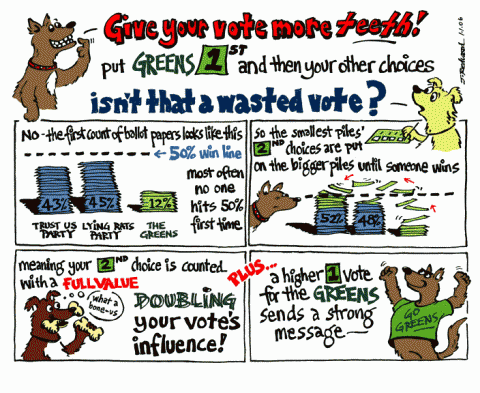 Give your vote more teeth!
put GREENS 1ST and then your other choices
isn't that a wasted vote?
No - the first count of ballot papers looks like this
← 50% win line
most often
no one
hits 50%
first time
43% 45% 12%
TRUST US PARTY
LYING RATS PARTY
THE GREENS
so the smallest piles'
2ND choices are put
on the bigger piles until someone wins
52% 48%
meaning your 2ND choice is counted
with a FULL VALUE
what a bone-us
DOUBLING
your vote's
influence!
PLUS...
a higher 1 vote
for the GREENS
sends a strong
message
GO
GREENS